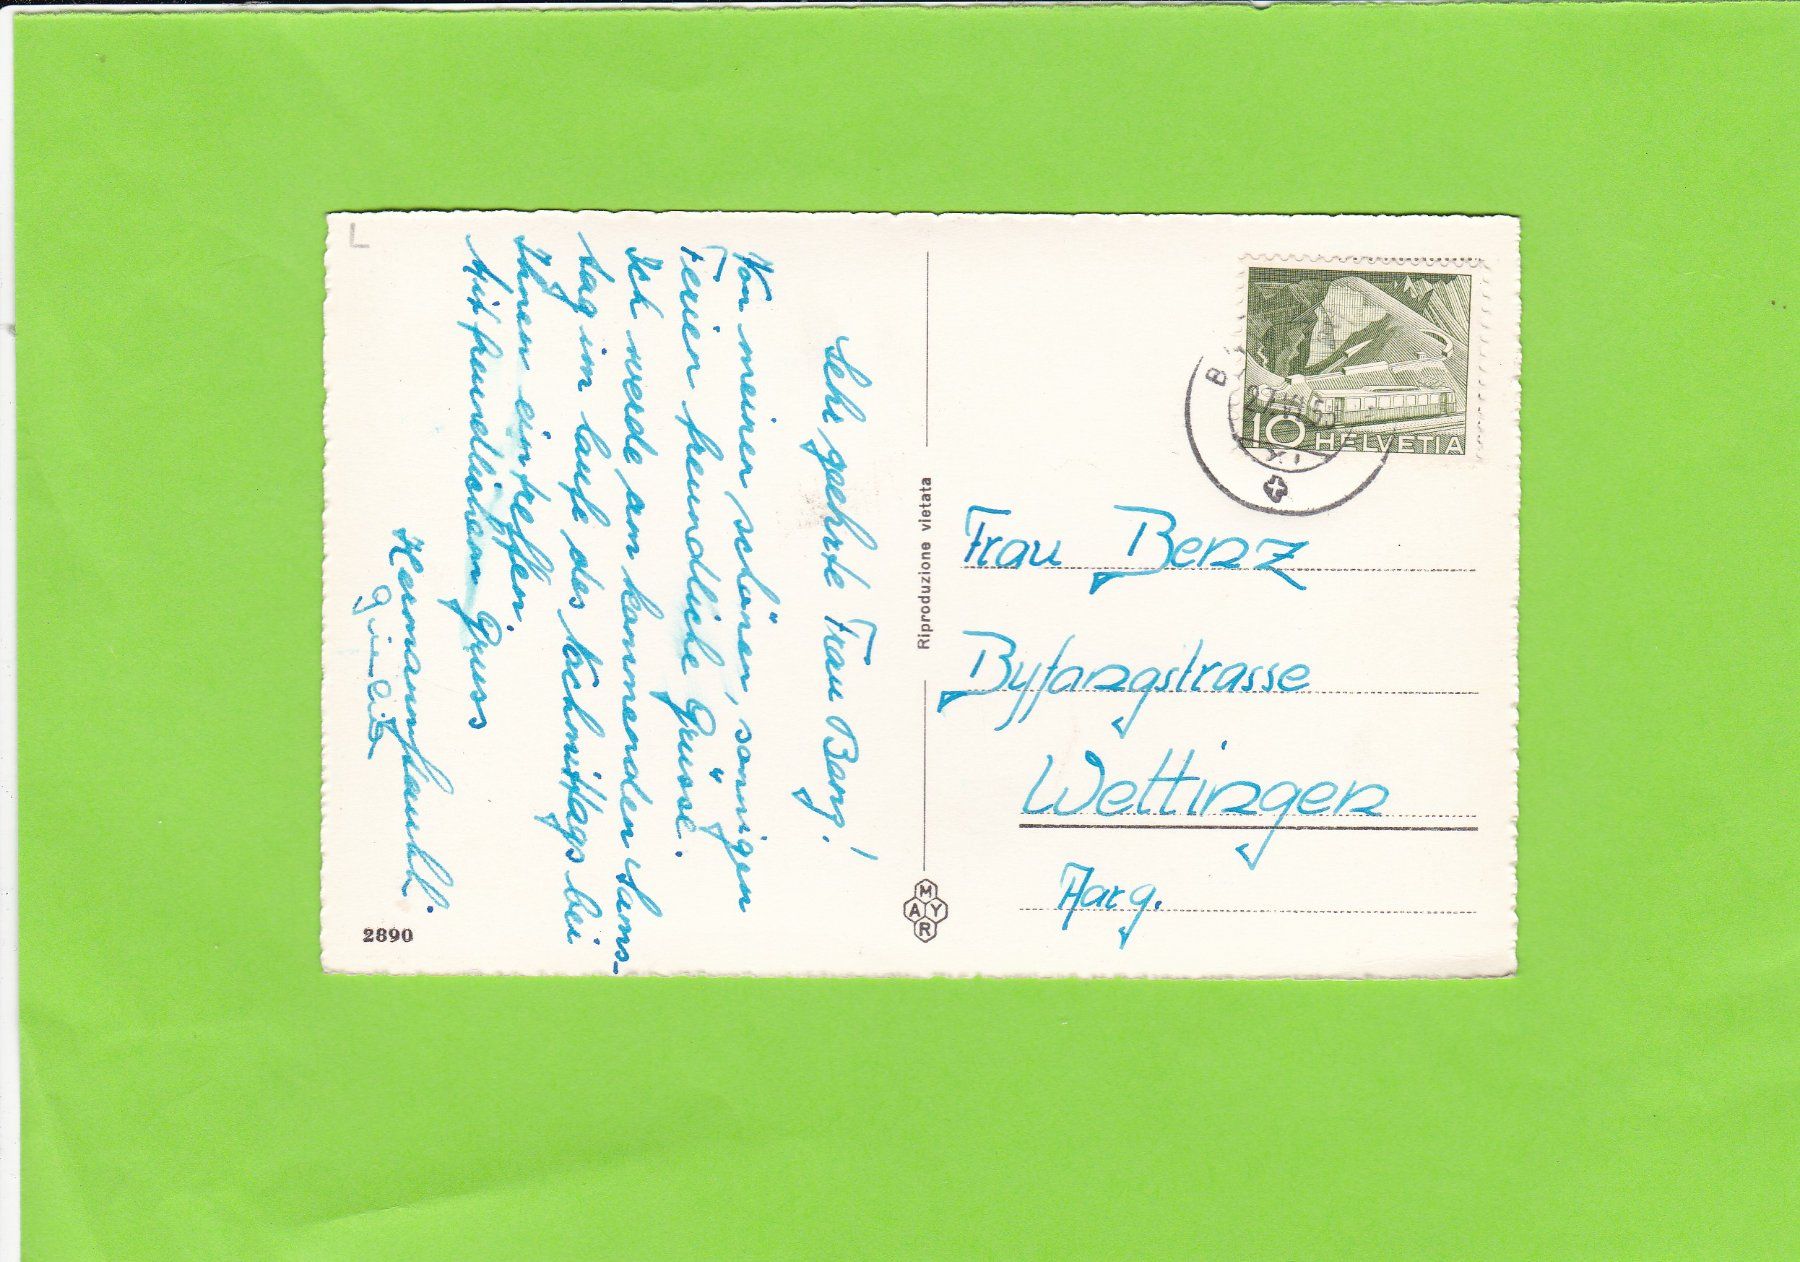 L
Sehr geehrte Frau Benz!
Von meinen schönen, sonnigen
Ferien freundliche Grüsse.
Ich werde am kommenden Sams-
tag im laufe des Nachmittags bei
Ihnen eintreffen.
Mit freundlichem Gruss
2890
Riproduzione vietata
MAYR
10 HELVETIA
Frau Benz
Byfangstrasse
Wettingen
Aarg.